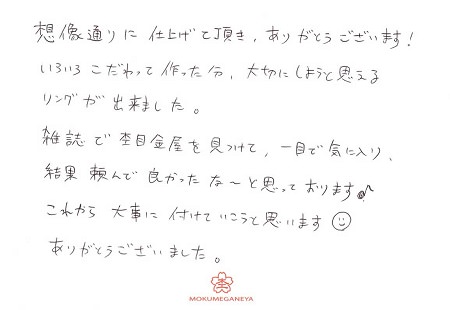 想像通りに仕上げて頂き、ありがとうございます!
いろいろこだわって作った分、大切にしようと思える
リングが出来ました。
雑誌で杢目金屋を見つけて、一目で気に入り、
結果頼んで良かったな〜と思っております♪
これから大事に付けていこうと思います☺
ありがとうございました。
杢
MOKUMEGANEYA